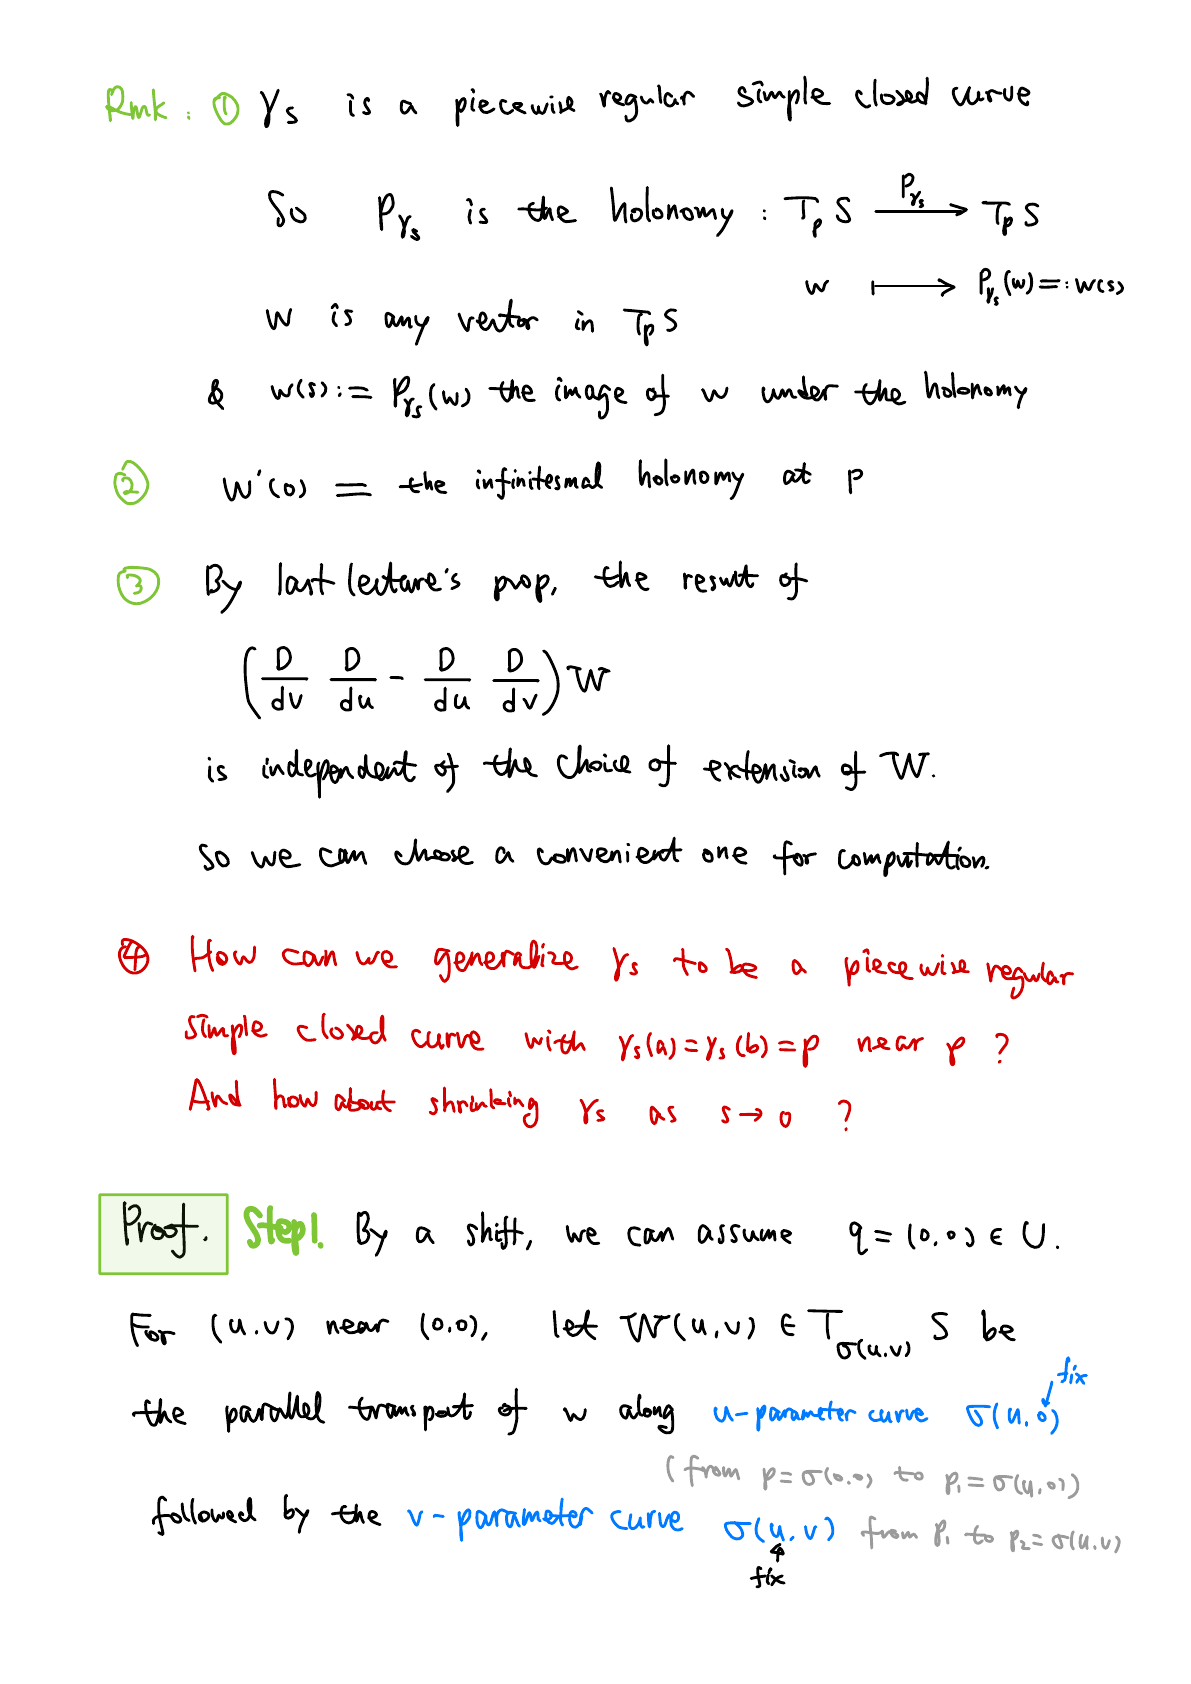 Rmk: ① γₛ is a piecewise regular simple closed curve
So P_γₛ is the holonomy : TₚS —P_γₛ→ TₚS
w ⟼ P_γₛ(w)=:w(s)
w is any vector in TₚS
& w(s):= P_γₛ(w) the image of w under the holonomy
② w'(0) = the infinitesmal holonomy at p
③ By last lecture's prop, the result of
(D/dv D/du - D/du D/dv) W
is independent of the choice of extension of W.
So we can choose a convenient one for computation.
④ How can we generalize γₛ to be a piecewise regular
simple closed curve with γₛ(a)=γₛ(b)=p near p ?
And how about shrinking γₛ as s→0 ?
Proof. Step1. By a shift, we can assume q=(0,0)∈U.
For (u,v) near (0,0), let W(u,v) ∈ T_σ(u,v) S be
fix
the parallel transport of w along u-parameter curve σ(u,0)
(from p=σ(0,0) to p₁=σ(u,0))
followed by the v-parameter curve σ(u,v) from p₁ to p₂=σ(u,v)
fix